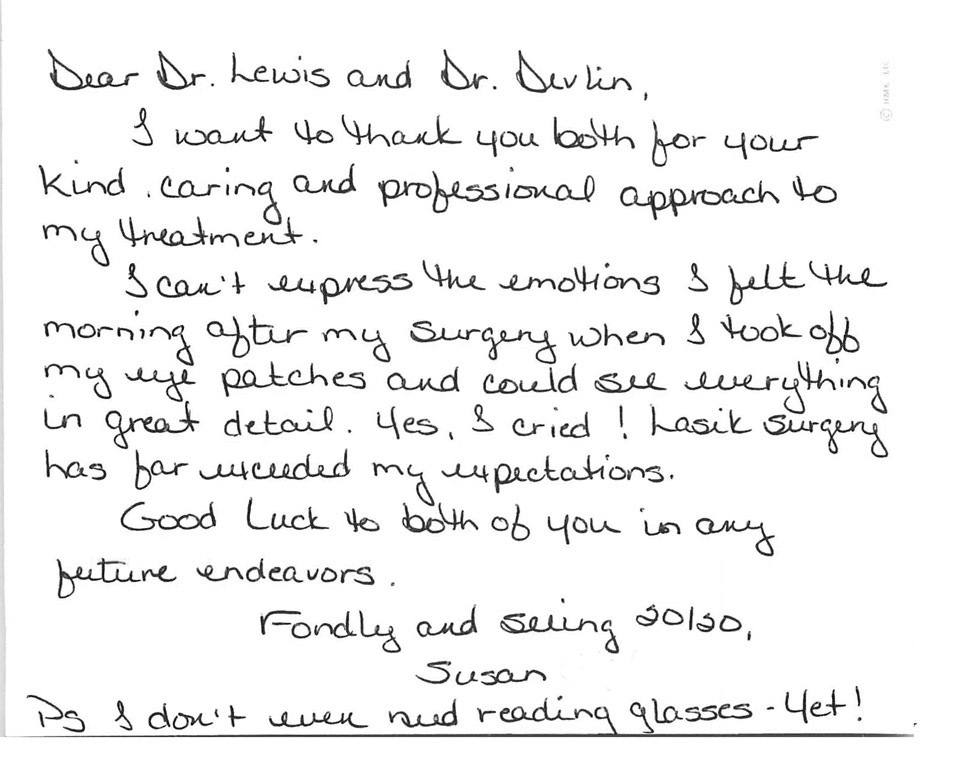 Dear Dr. Lewis and Dr. Devlin,
I want to thank you both for your
kind, caring and professional approach to
my treatment.
I can't express the emotions I felt the
morning after my surgery when I took off
my eye patches and could see everything
in great detail. Yes, I cried! Lasik surgery
has far exceeded my expectations.
Good Luck to both of you in any
future endeavors.
Fondly and seeing 20/20,
Susan
Ps I don't even need reading glasses - Yet!
© HMK. LIC.